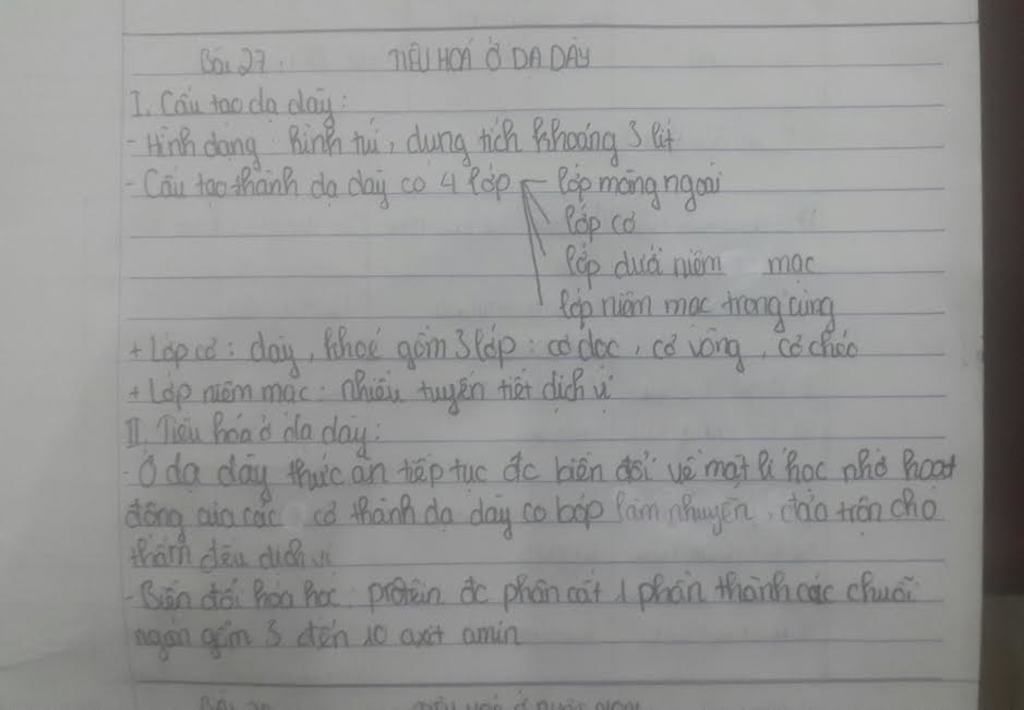 Bài 27. TIÊU HOÁ Ở DẠ DÀY
I. Cấu tạo dạ dày:
- Hình dạng: hình túi, dung tích khoảng 3 lít
- Cấu tạo thành dạ dày có 4 lớp lớp màng ngoài
lớp cơ
lớp dưới niêm mạc
lớp niêm mạc trong cùng
+ Lớp cơ: dày, khoẻ gồm 3 lớp: cơ dọc, cơ vòng, cơ chéo
+ Lớp niêm mạc: nhiều tuyến tiết dịch vị
II. Tiêu hóa ở dạ dày:
- Ở dạ dày thức ăn tiếp tục đc biến đổi về mặt lí học nhờ hoạt
động của các cơ thành dạ dày co bóp làm nhuyễn, đảo trộn cho
thấm đều dịch vị
- Biến đổi hóa học: protêin đc phân cắt 1 phần thành các chuỗi
ngắn gồm 3 đến 10 axit amin